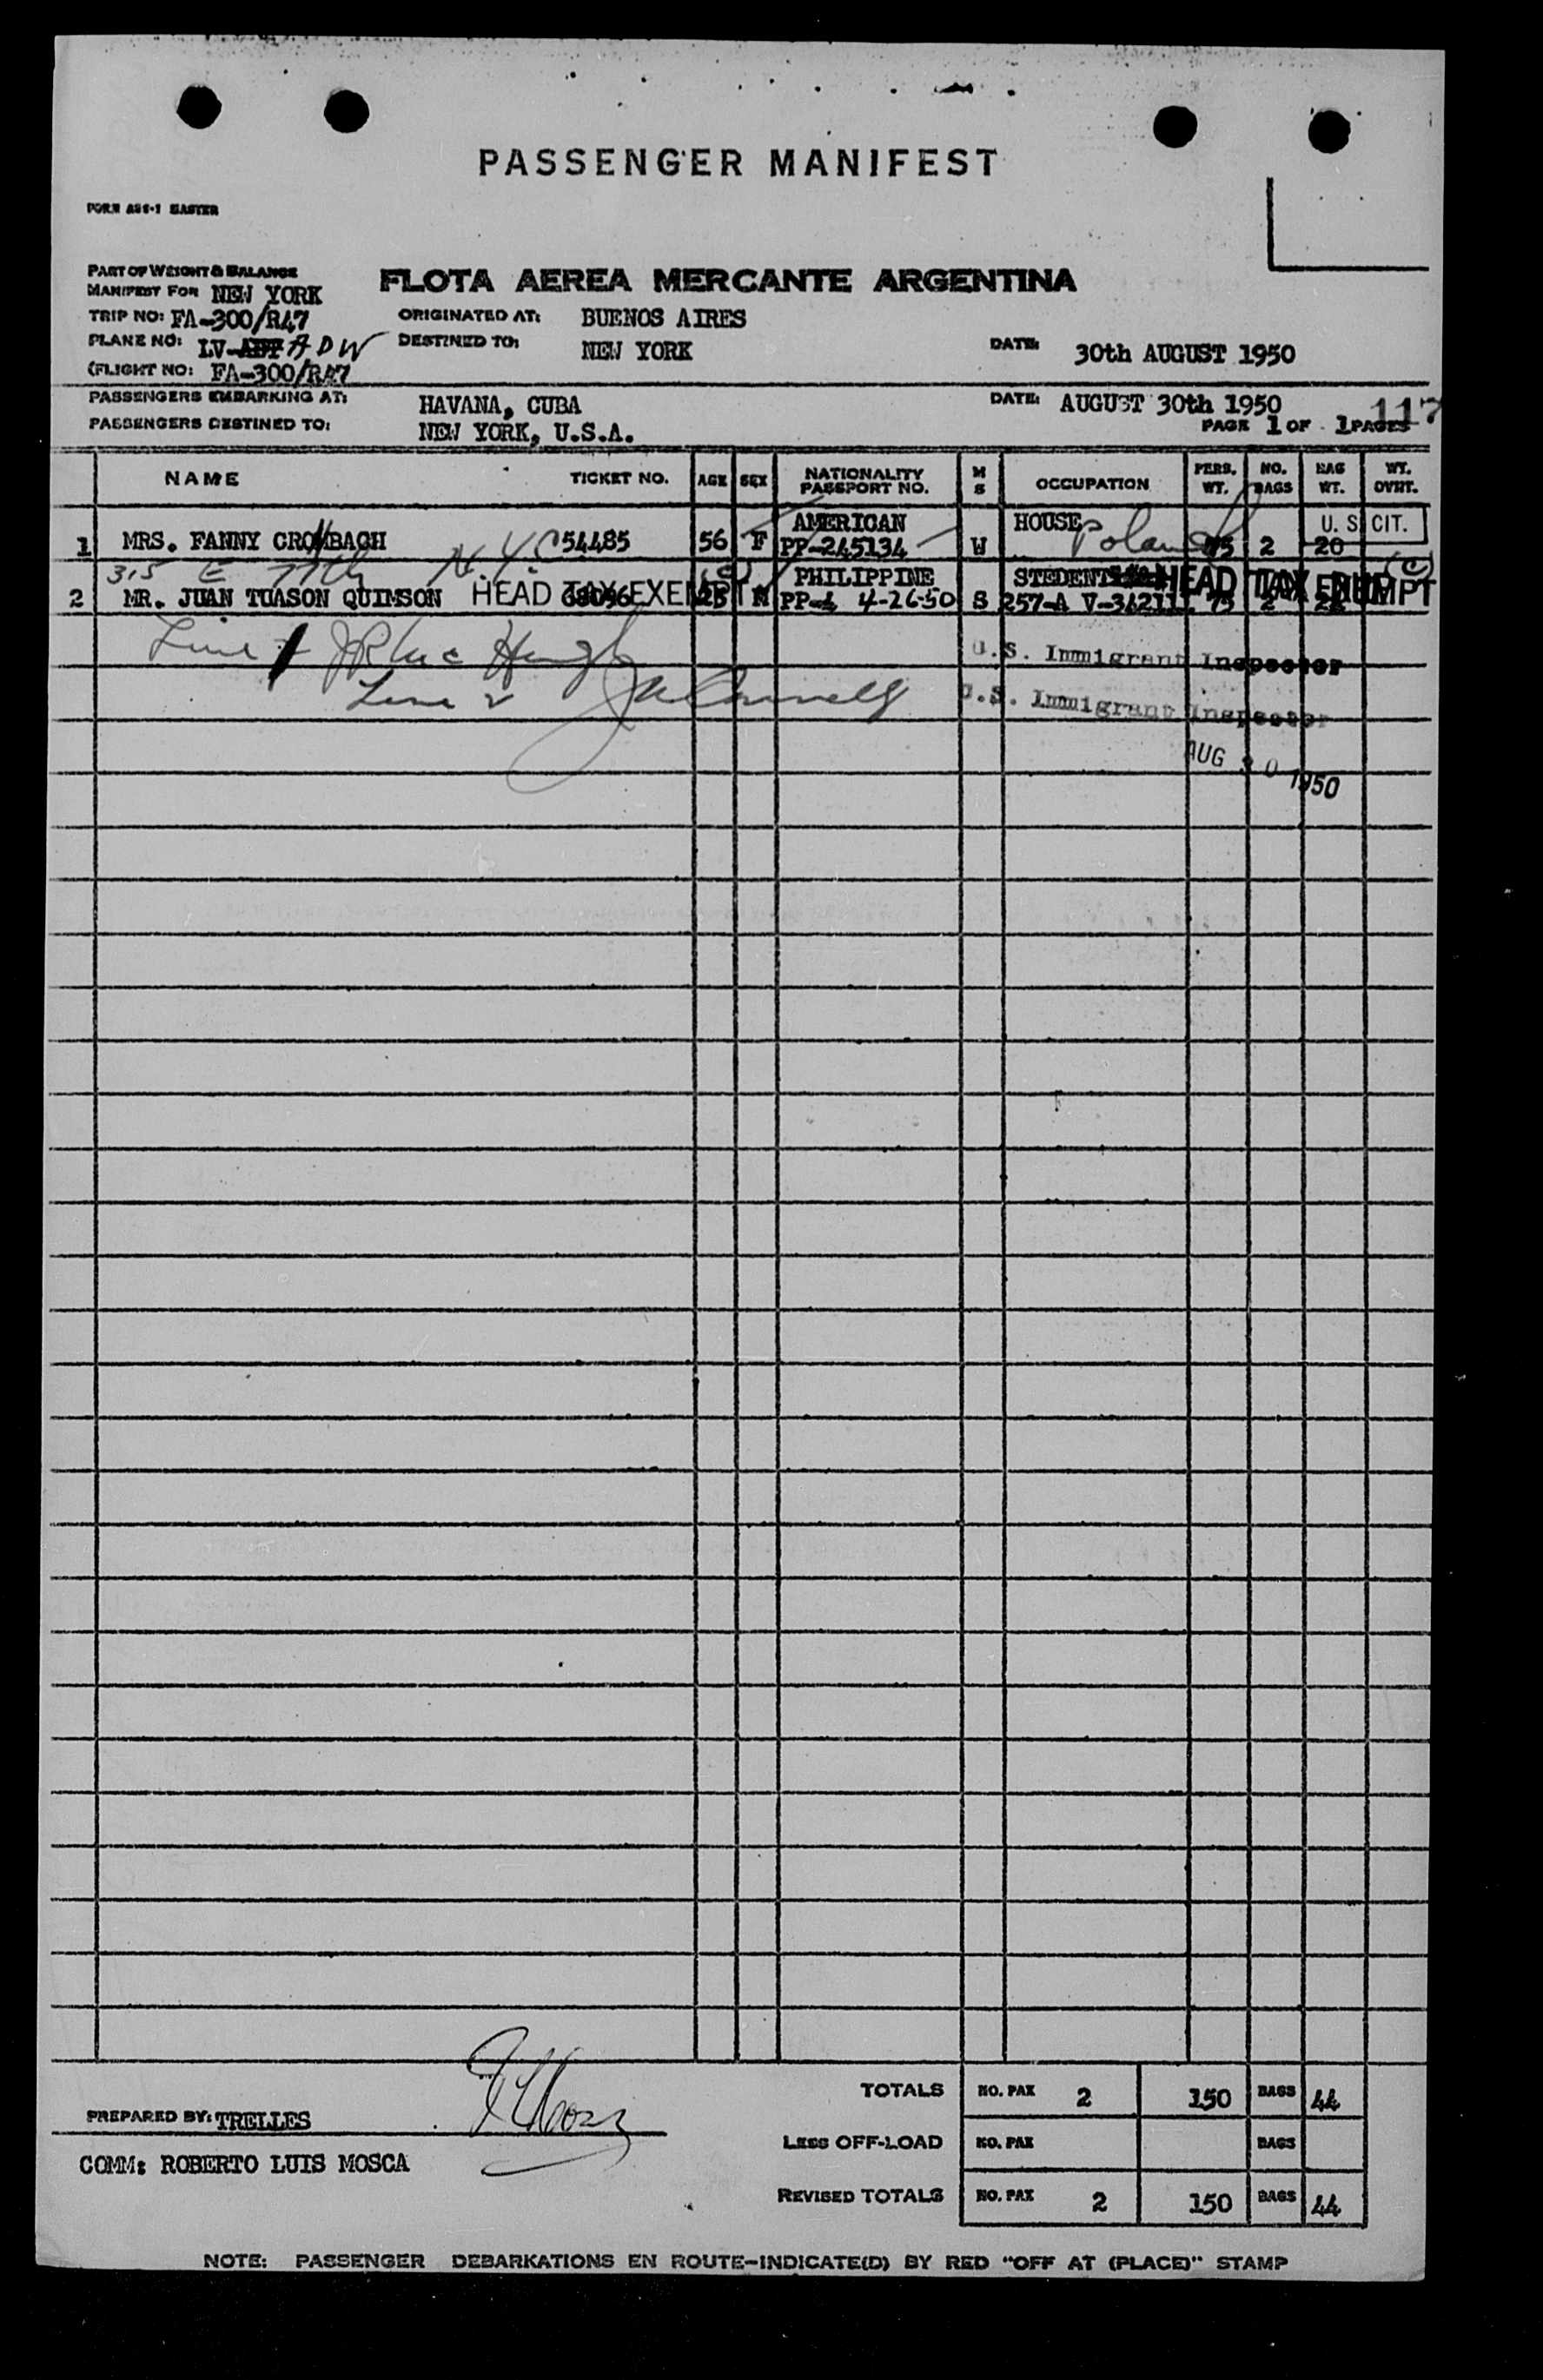 PASSENGER MANIFEST
PART OF WEIGHT & BALANCE
MANIFEST FOR NEW YORK
FLOTA AEREA MERCANTE ARGENTINA
TRIP NO: FA-300/RA7
ORIGINATED AT: BUENOS AIRES
PLANE NO: LV- ADW
DESTINED TO: NEW YORK
DATE: 30th AUGUST 1950
(FLIGHT NO: FA-300/RA7
PASSENGERS EMBARKING AT: HAVANA, CUBA
DATE: AUGUST 30th 1950
117
PASSENGERS DESTINED TO: NEW YORK, U.S.A.
PAGE 1 OF 1 PAGES
NAME TICKET NO. AGE SEX NATIONALITY PASSPORT NO. M S OCCUPATION PERS. WT. NO. BAGS BAG WT. WT. OVHT.
AMERICAN HOUSE U.S. CIT.
1 MRS. FANNY CRONBACH 54485 56 F PP-245134 W Poland 75 2 20
315 E 77th N.Y.C (C) PHILIPPINE STEDENT HEAD TAX EXEMPT (C)
2 MR. JUAN TUASON QUIMSON HEAD TAX EXEMPT 25 M PP-1 4-26-50 S 257-A 75 2
Line 1 U.S. Immigrant Inspector
Line 2 U.S. Immigrant Inspector
AUG 30 1950
TOTALS NO. PAX 2 150 BAGS 44
PREPARED BY: TRELLES
LESS OFF-LOAD NO. PAX BAGS
COMM: ROBERTO LUIS MOSCA
REVISED TOTALS NO. PAX 2 150 BAGS 44
NOTE: PASSENGER DEBARKATIONS EN ROUTE-INDICATE(D) BY RED "OFF AT (PLACE)" STAMP